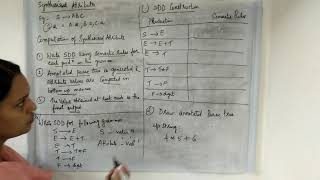 Synthesized Attribute
Eg: S → ABC
S.a = A.a, B.a, C.a
Computation of Synthesized Attribute
① Write SDD using Semantic Rules for
each prodⁿ in the grammar
② Annotated parse tree is generated &
attribute values are computed in
bottom up manner
③ The value obtained at root node is the
final output
Write SDD for following grammar
S → E
E → E + T
E → T
T → T * F
T → F
F → digit
S
Attribute - Val
SDD Construction
Production
Semantic Rules
S → E
E → E + T
E → T
T → T * F
T → F
F → digit
Draw Annotated Parse tree
i/p string